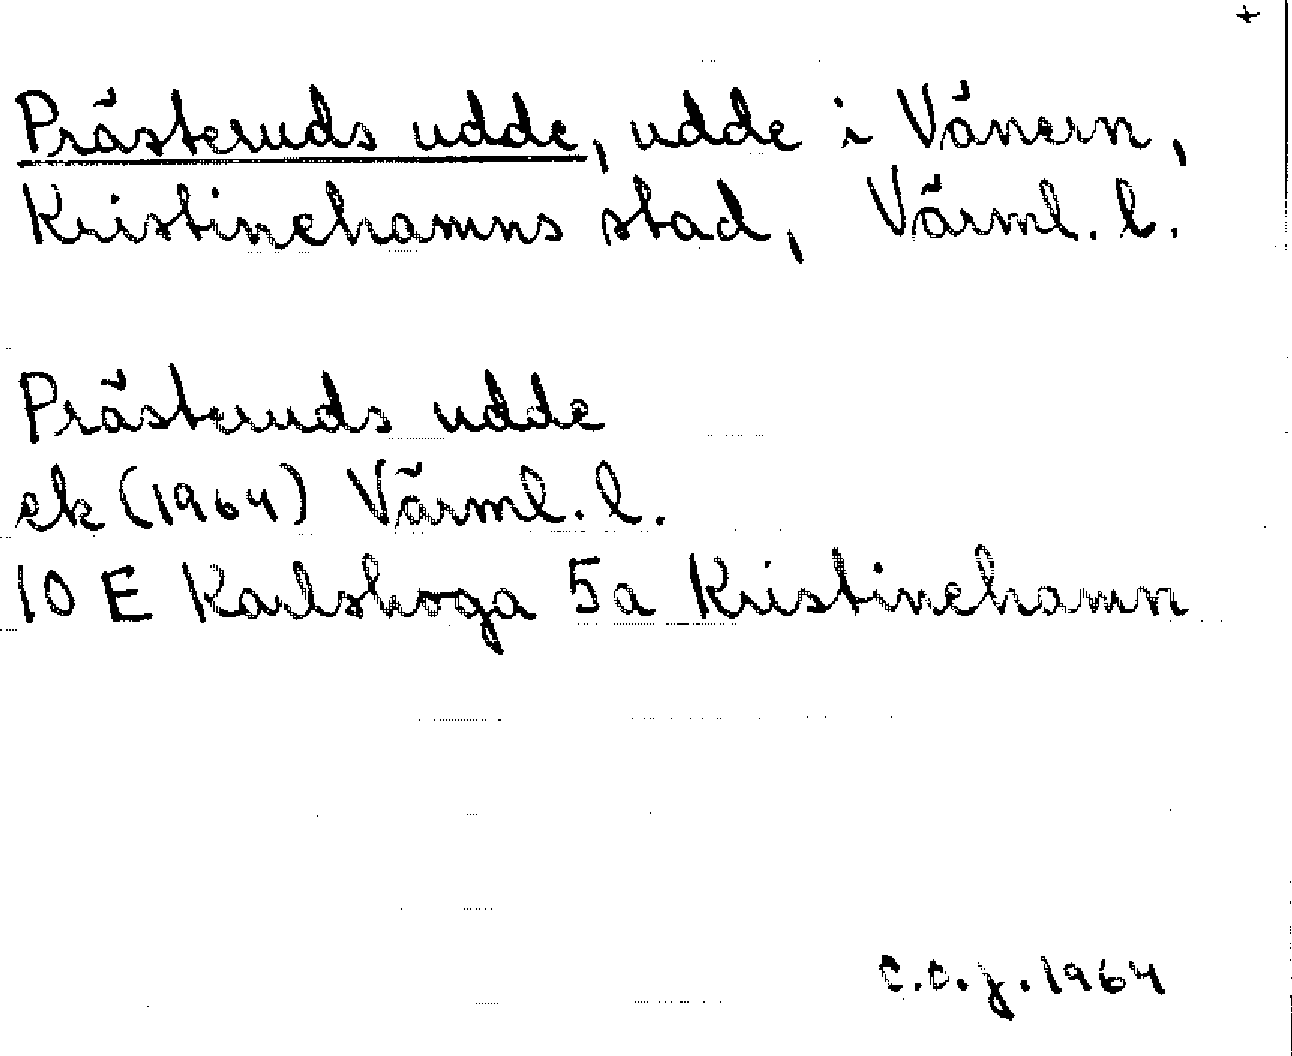 +
Prästeruds udde, udde i Vänern,
Kristinehamns stad, Värml. l.
Prästeruds udde
ek (1964) Värml. l.
10 E Karlskoga 5a Kristinehamn
C.C.J. 1964